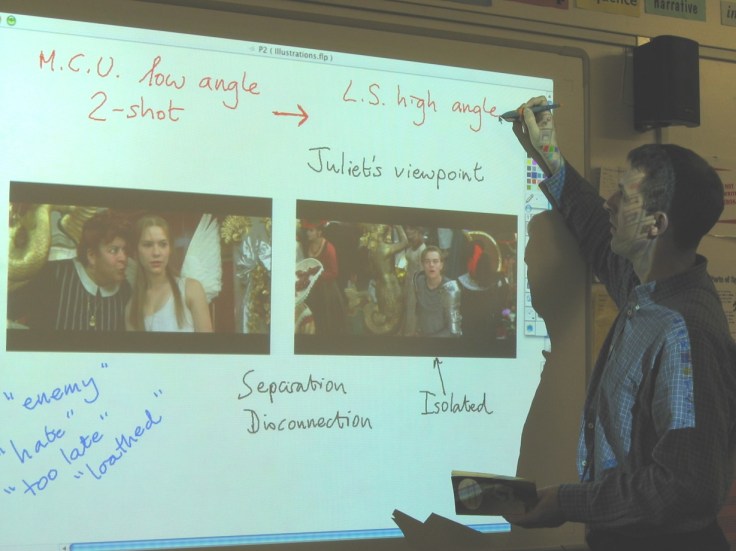 narrative
P2 ( Illustrations.flp )
M.C.U. low angle
2-shot
→ L.S. high angle
Juliet's viewpoint
"enemy"
"hate"
"too late"
"loathed"
Separation
Disconnection
Isolated